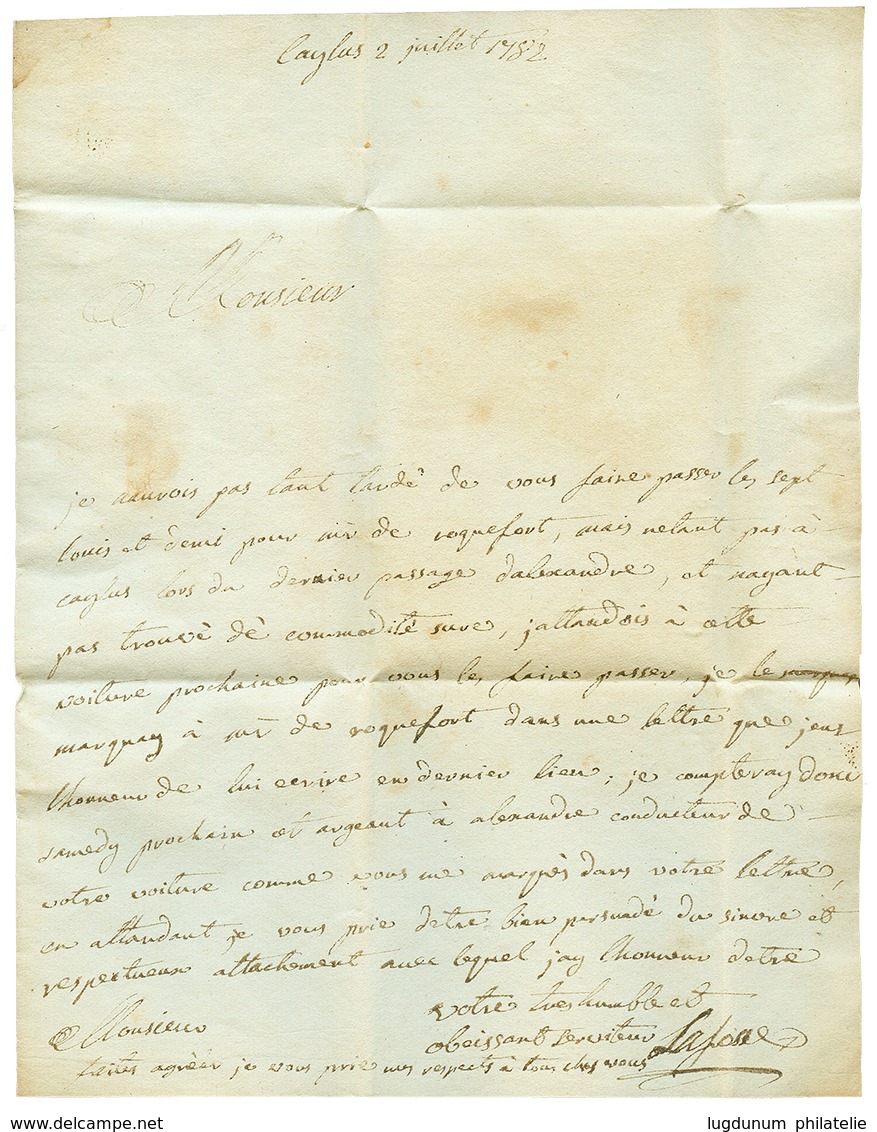 Caylus 2 juillet 1782
Monsieur
je naurois pas tant tardé de vous faire passer les sept
louis et demi pour mr de roquefort, mais netant pas à
caylus lors du dernier passage dalexandre, et nayant
pas trouvè dè commodité sure, jattandois à cette
voiture prochaine pour vous les faire passer, je le
marquay à mr de roquefort dans une lettre que jeus
lhonneur de lui ecrire en dernier lieu; je compteray donc
samedy prochain cet argeant à alexandre conducteur de
votre voiture comme vous me marqués dans votre lettre,
en attandant je vous prie detre bien persuadé du sincere et
respectueux attachement avec lequel jay lhonneur detre
votre tres humble et
Monsieur
obeissant serviteur Lafosse
faites agréér je vous prie mes respects à tous chez vous
www.delcampe.net
lugdunum philatelie